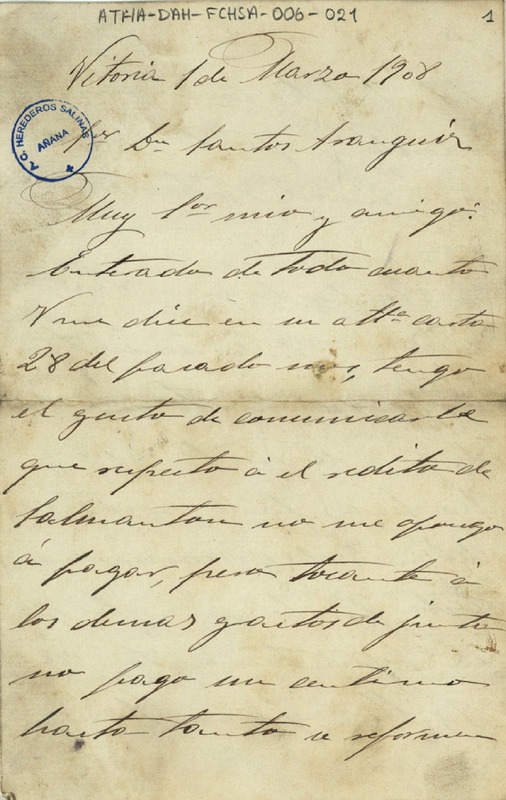 ATHA-DAH-FCHSA-006-021
1
Vitoria 1 de Marzo 1908
A. C. HEREDEROS SALINAS
AÑANA
Sr Dn Santos Aranguiz
Muy Sor mio y amigo:
Enterado de todo cuanto
V me dice en su atta carta
28 del pasado mes, tengo
el gusto de comunicarle
que respecto á el redito de
Salmanton no me opongo
á pagar, pero tocante á
los demas gastos de junta
no pago un centimo
hasta tanto se reformen